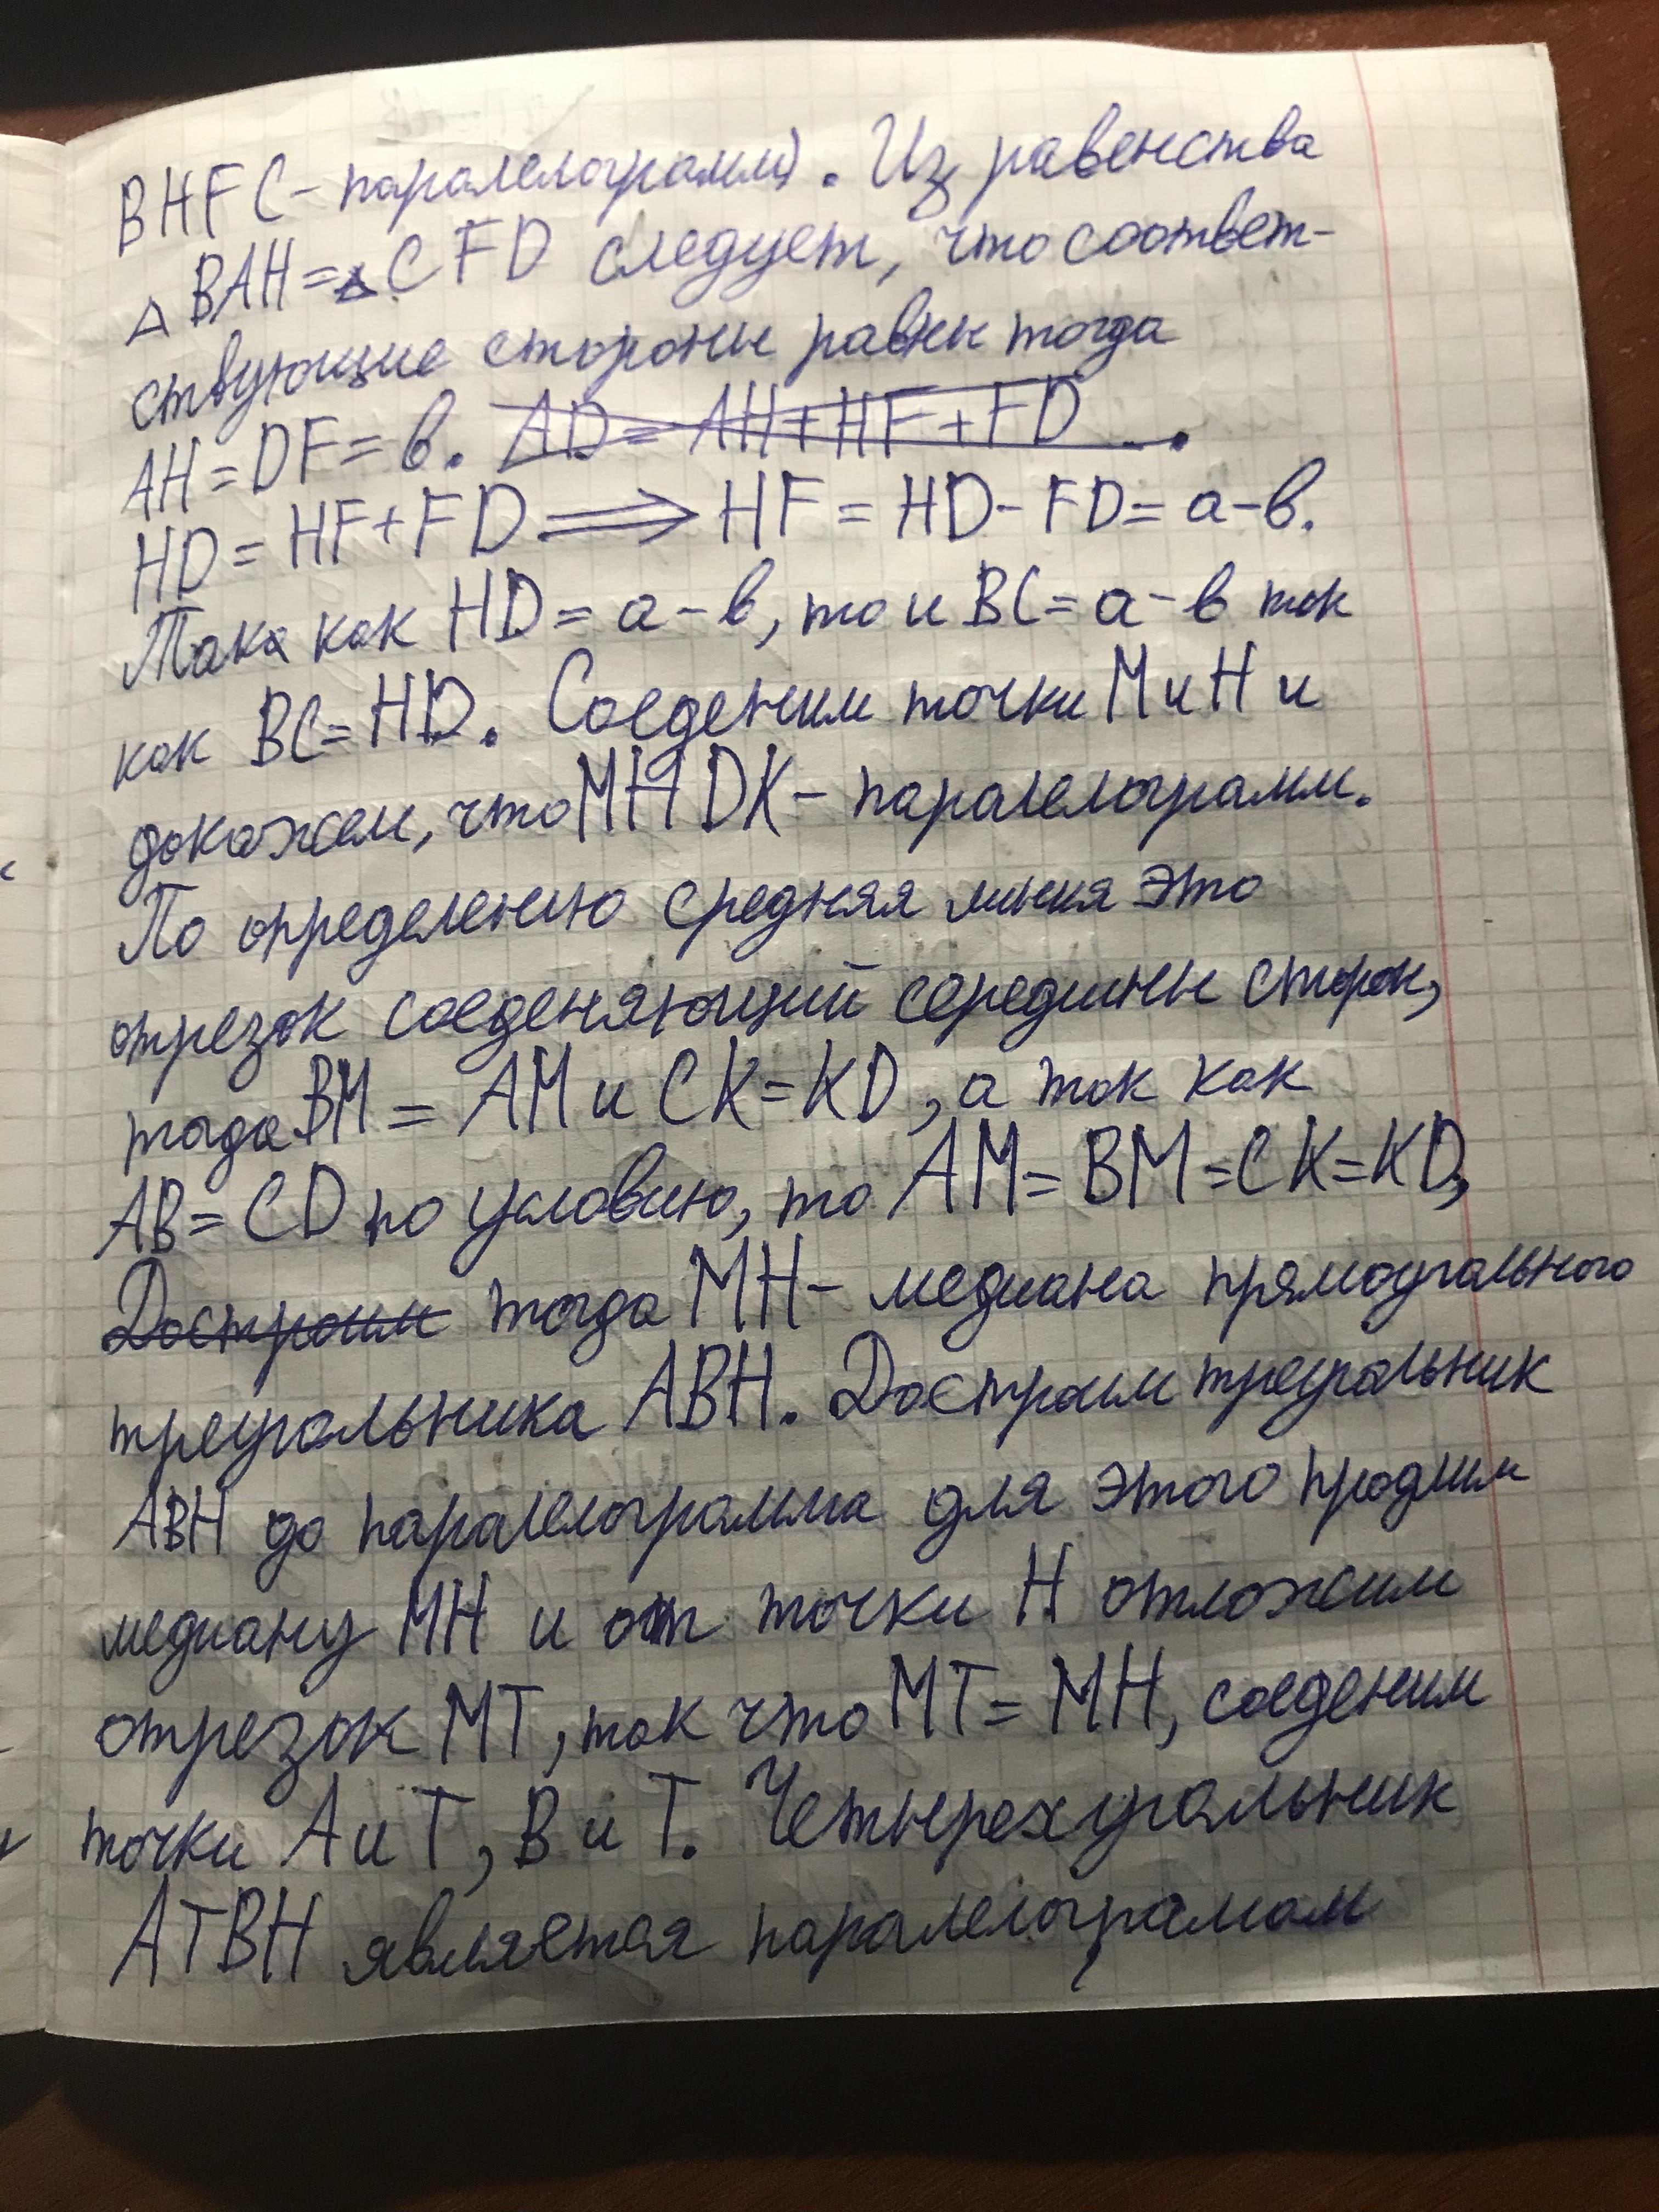 BHFC - паралелограмм. Из равенства
△BAH=△CFD следует, что соответ-
ствующие стороны равны тогда
AH=DF=в. AD=AH+HF+FD
HD=HF+FD⟹HF=HD-FD=a-в.
Така как HD=a-в, то и BC=a-в так
как BC=HD. Соеденим точки M и H и
докажем, что MHDK - паралелограмм.
По определению средняя линия это
отрезок соеденяющий середины сторон,
тогда BM=AM и CK=KD, а так как
AB=CD по условию, то AM=BM=CK=KD,
Достроим тогда MH - медиана прямоугольного
треугольника ABH. Достроим треугольник
ABH до паралелограмма для этого продлим
медиану MH и от точки H отложим
отрезок MT, так что MT=MH, соеденим
точки A и T, B и T. Четырехугольник
ATBH является паралелограмом